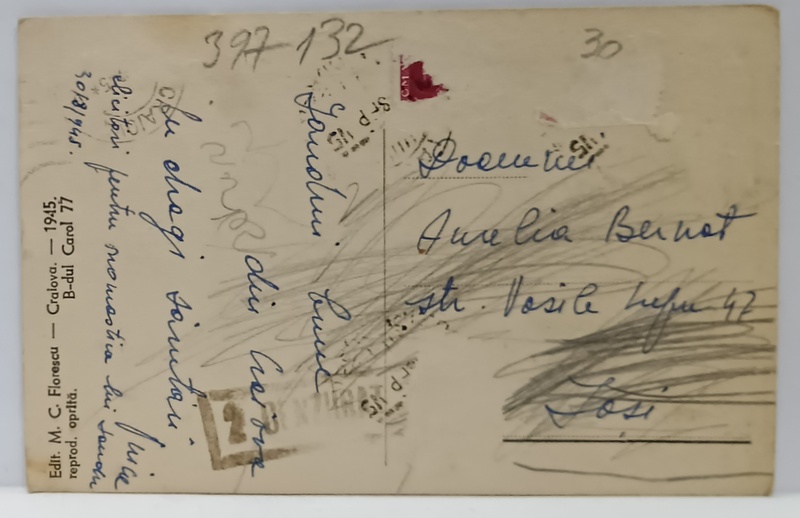 397-132
30
Doamnei
Aurelia Bernat
str. Vasile Lupu 47
Iași
SEP 45
Cu dragi sănătări
din Craiova
Sanduri
felicitări pentru onomastica lui Sandu
30/8/945.
2 CENZURAT
Edit. M. C. Florescu — Craiova. — 1945.
B-dul Carol 77
reprod. oprită.